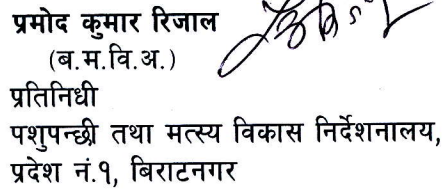 प्रमोद कुमार रिजाल
(ब.म.वि.अ.)
प्रतिनिधी
पशुपन्छी तथा मत्स्य विकास निर्देशनालय,
प्रदेश नं.१, बिराटनगर